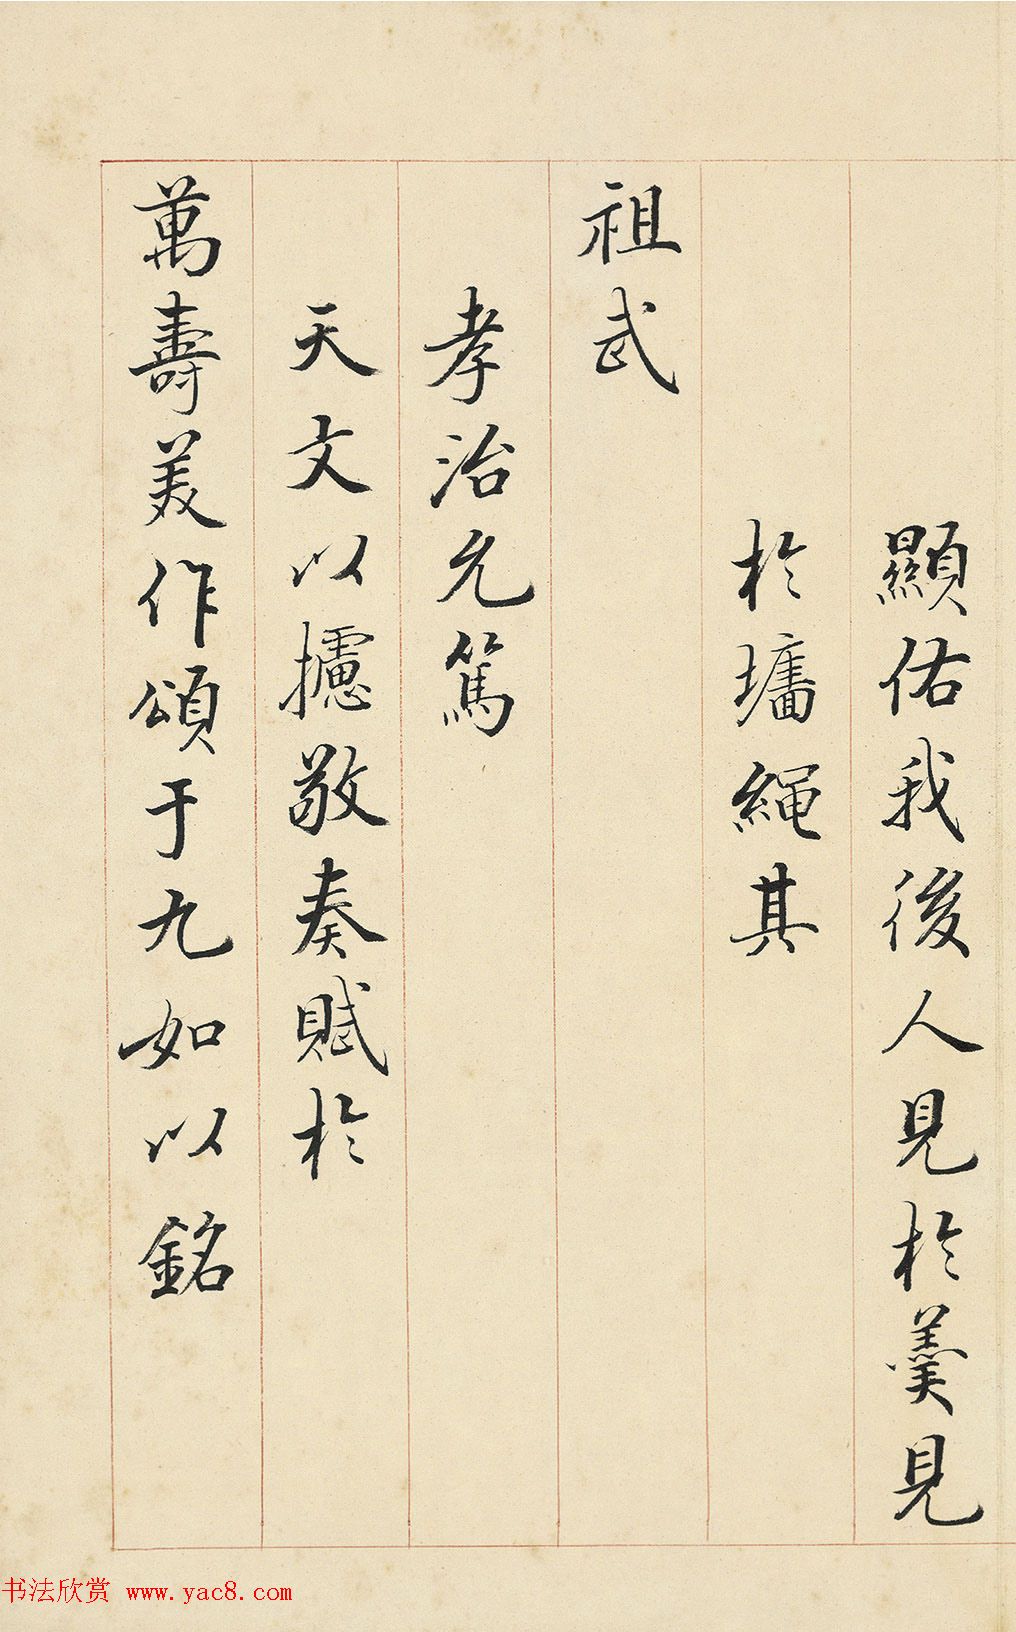 顯佑我後人見於羹見
於墻繩其
祖武
孝治允篤
天文以攄敬奏賦於
萬壽美作頌于九如以銘
书法欣赏 www.yac8.com